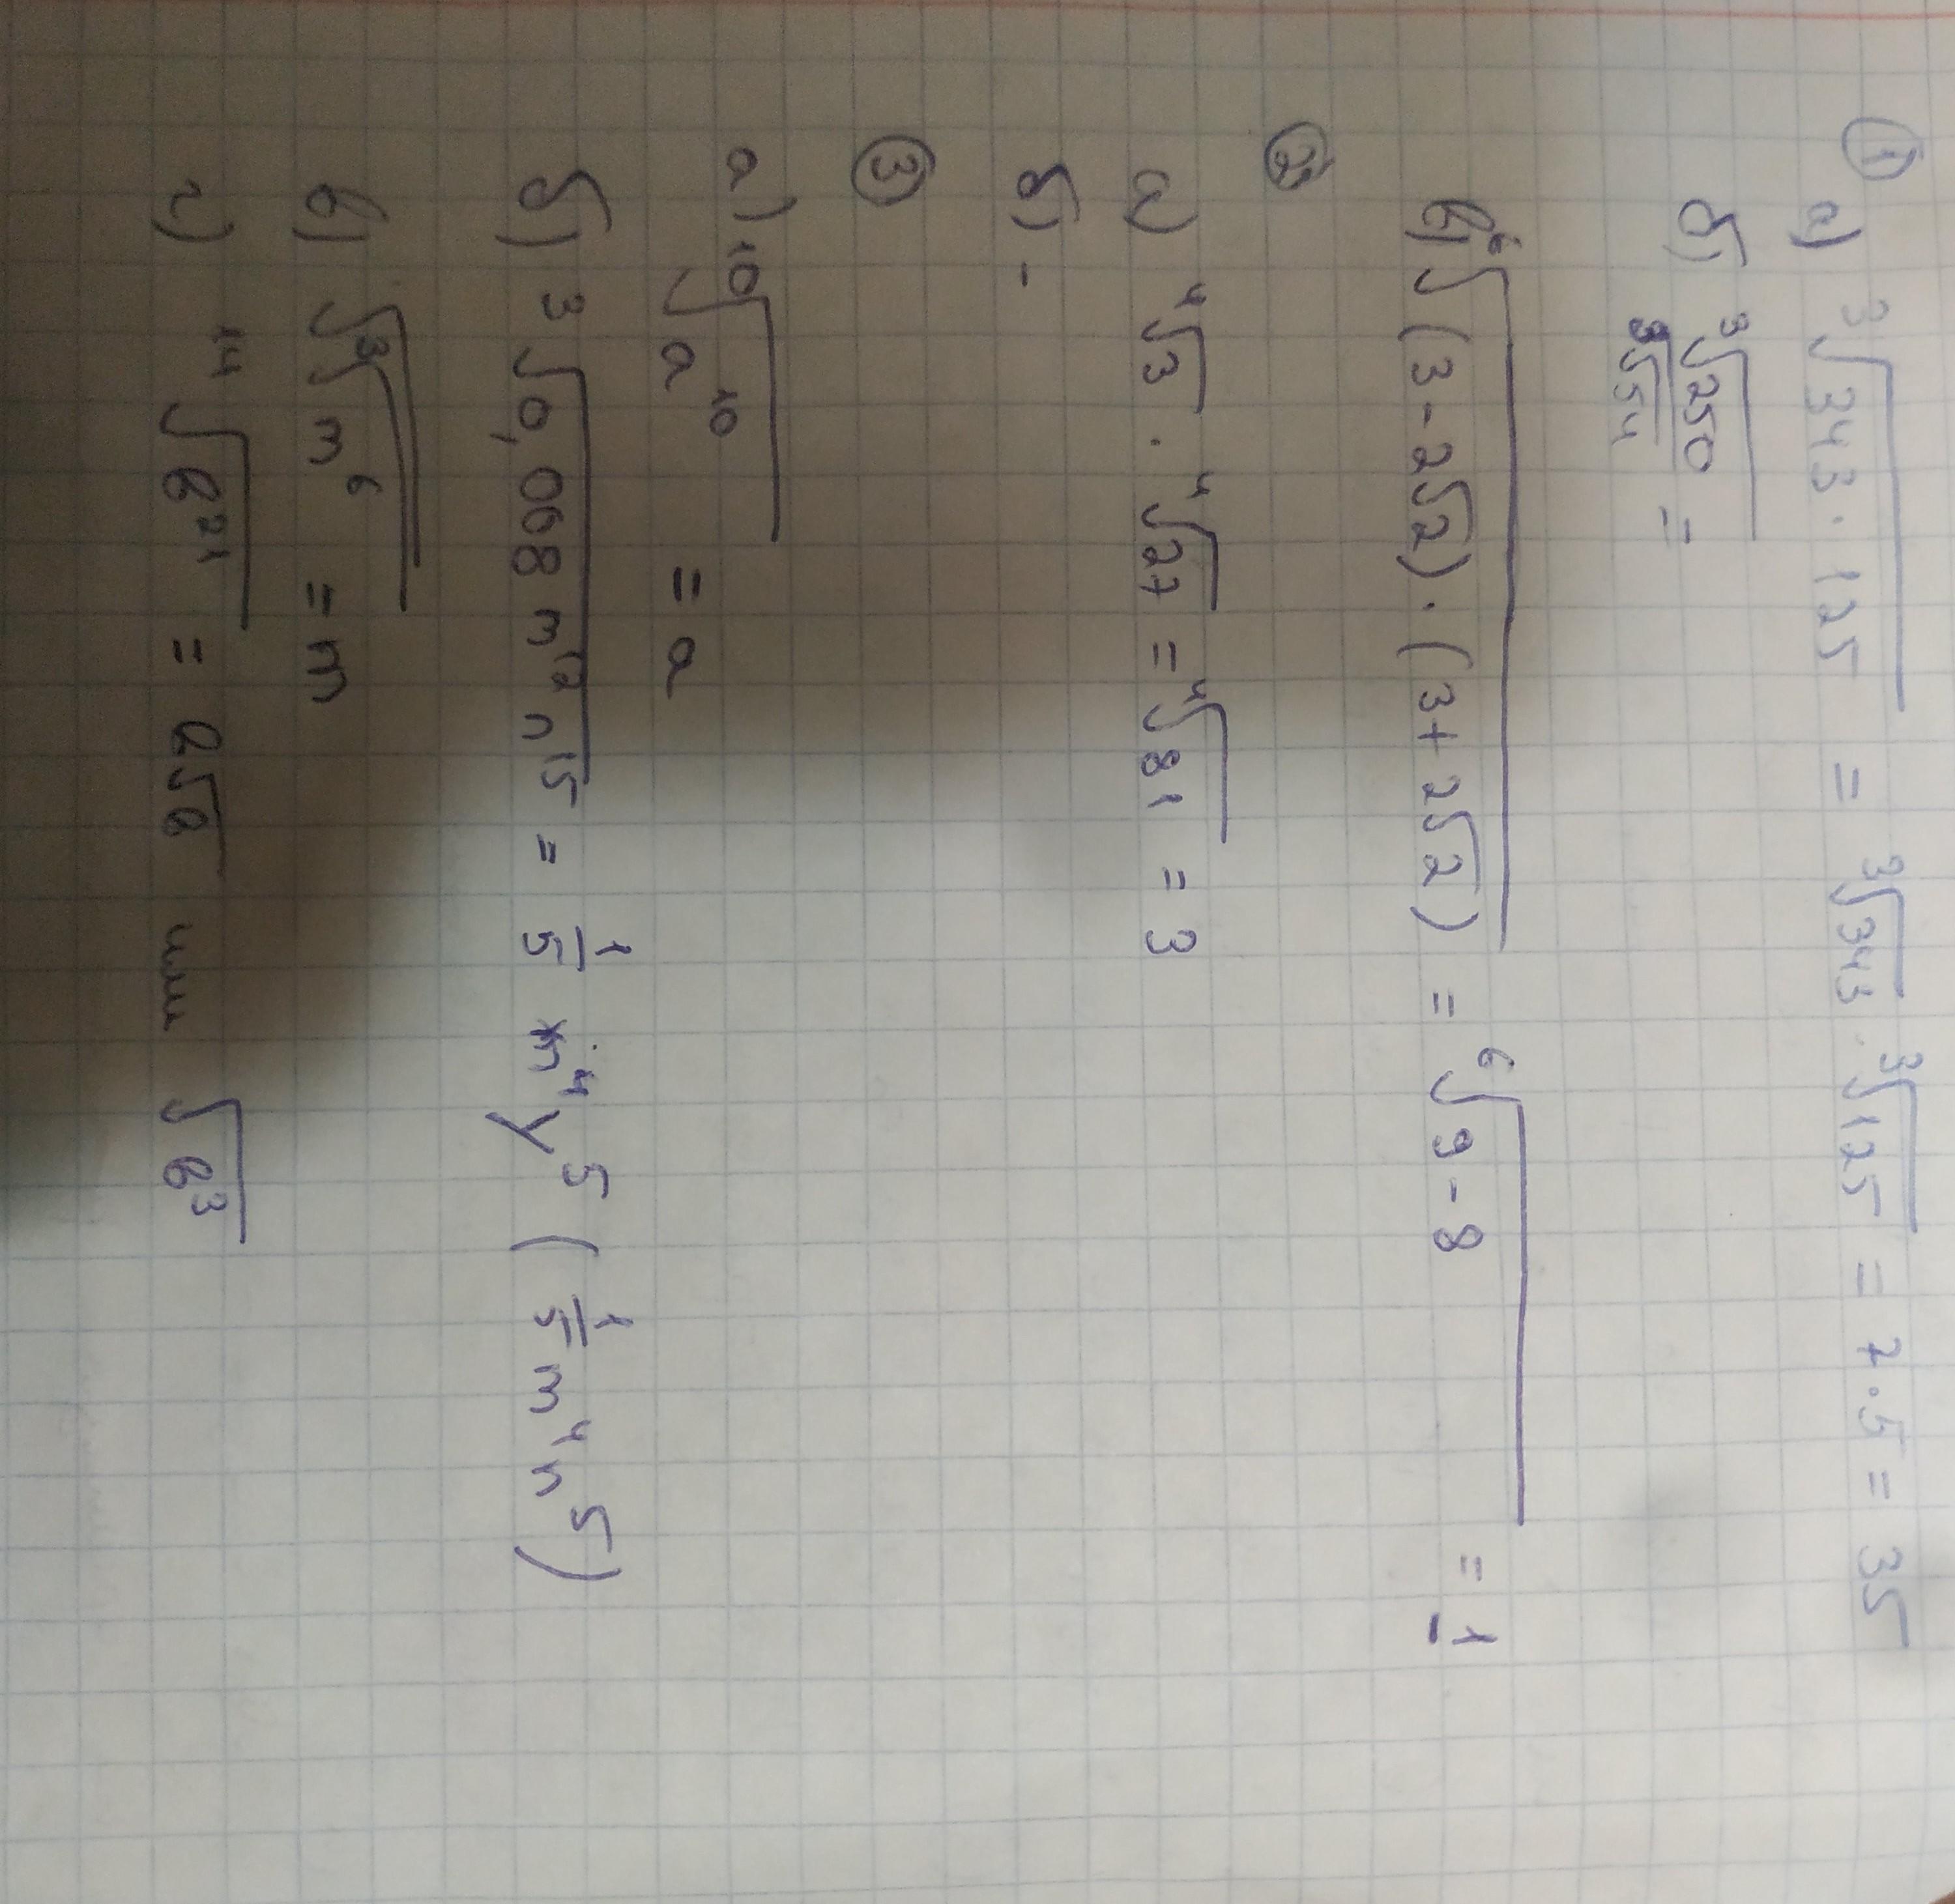 ①
а) ³√343·125 = ³√343 · ³√125 = 7·5 = 35
б) ³√250 / ³√54 =
в) ⁶√(3-2√2)·(3+2√2) = ⁶√9-8 = 1
②
а) ⁴√3 · ⁴√27 = ⁴√81 = 3
б) -
③
а) ¹⁰√a¹⁰ = a
б) ³√0,008 m¹² n¹⁵ = 1/5 m⁴y⁵ (1/5 m⁴n⁵)
в) √³√m⁶ = m
г) ¹⁴√в²¹ = в√в или √в³